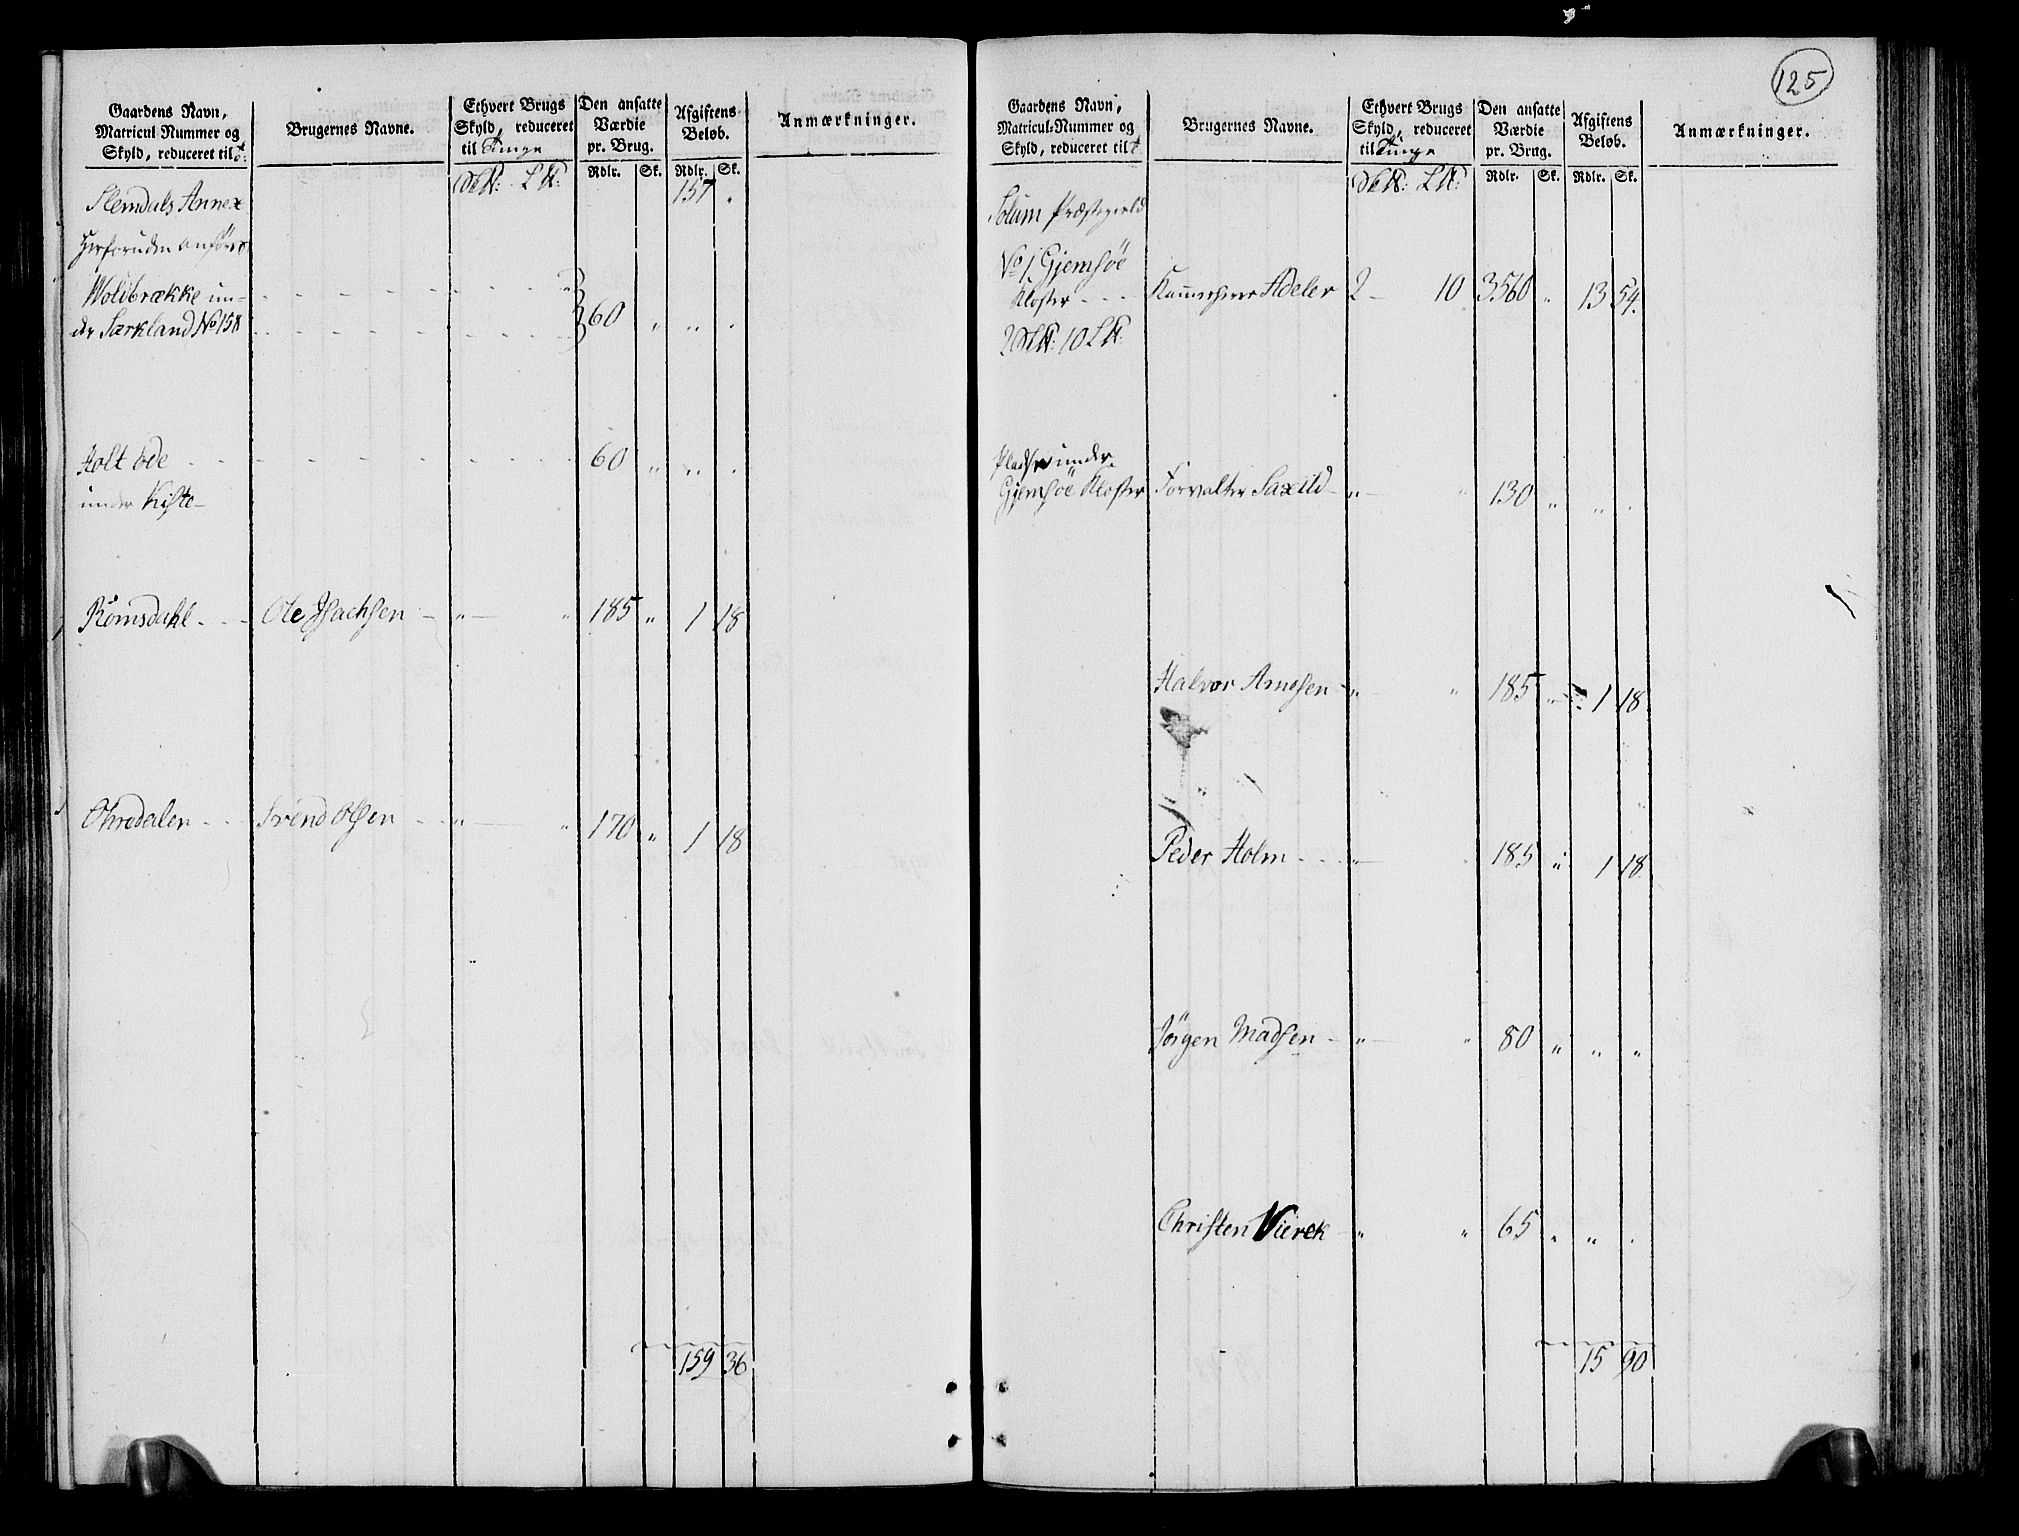 125
Gaardens Navn,
Matricul Nummer og
Skyld, reduceret til
Brugernes Navne.
Ethvert Brugs
Skyld, reduceret
til Tunge
Den ansatte
Værdie
pr. Brug.
Afgiftens
Beløb.
Anmærkninger.
Rdlr. Sk. Rdlr. Sk.
Slemdals Annex 157 "
Herforuden anført
Wolibrække un-
der Særkland No 158 60 " " "
Holt øde 60 " " "
under Kiste
Romsdahl Ole Isachsen " " 185 " 1 18
Ohredalen Svend Olsen " " 170 " 1 18
159 36
Gaardens Navn,
Matricul-Nummer og
Skyld, reduceret til
Brugernes Navne.
Ethvert Brugs
Skyld, reduceret
til Tunge
Den ansatte
Værdie
pr. Brug.
Afgiftens
Beløb.
Anmærkninger.
Rdlr. Sk. Rdlr. Sk.
Solum Præstegield
No 1. Gjemsöe
Kloster Kammerherr Adeler 2 10 3560 " 13 54.
Pladser under
Gjemsöe Kloster Forvalter Saxild " " 130 " " "
Halvor Arnesen " " 185 " 1 18
Peder Holm " " 185 " 1 18
Jörgen Madsen " " 80 " " "
Christen Vierek " " 65 " " "
15 90